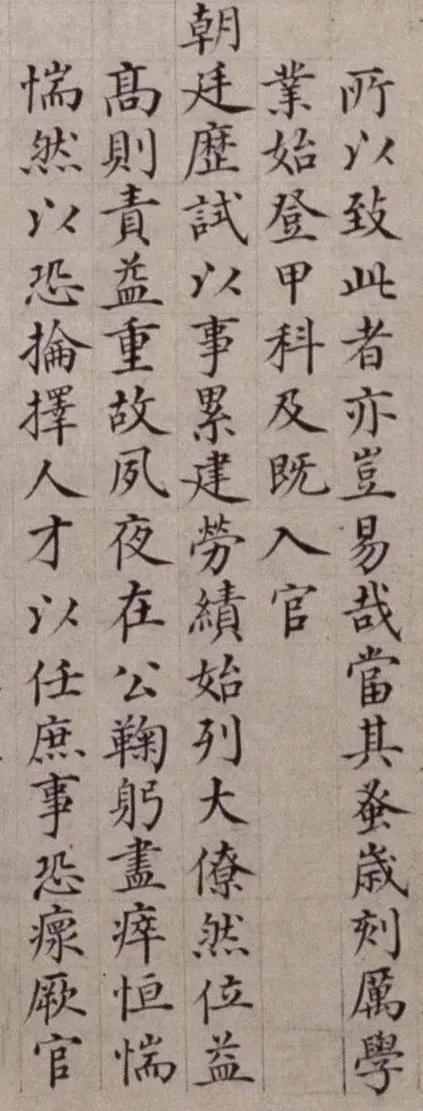 所以致此者亦豈易哉當其蚤歲刻厲學
業始登甲科及既入官
朝廷歷試以事累建勞績始列大僚然位益
高則責益重故夙夜在公鞠躬盡瘁恒惴
惴然以恐掄擇人才以任庶事恐瘝厥官